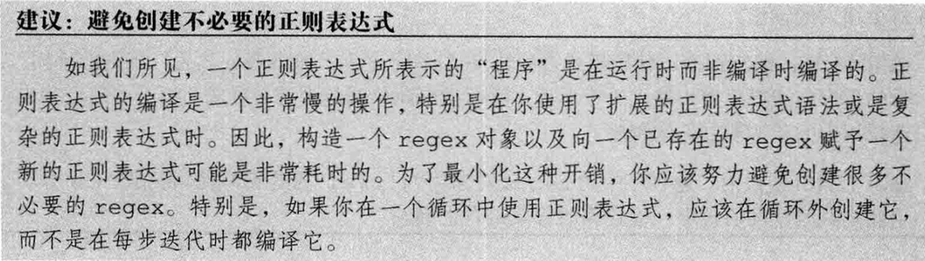 建议：避免创建不必要的正则表达式
如我们所见，一个正则表达式所表示的“程序”是在运行时而非编译时编译的。正
则表达式的编译是一个非常慢的操作，特别是在你使用了扩展的正则表达式语法或是复
杂的正则表达式时。因此，构造一个 regex 对象以及向一个已存在的 regex 赋予一个
新的正则表达式可能是非常耗时的。为了最小化这种开销，你应该努力避免创建很多不
必要的 regex。特别是，如果你在一个循环中使用正则表达式，应该在循环外创建它，
而不是在每步迭代时都编译它。